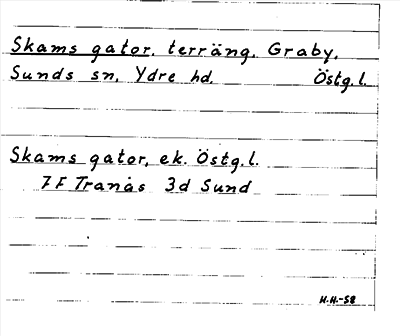 Skams gator. terräng. Graby,
Sunds sn. Ydre hd. Östg.l.
Skams gator, ek. Östg.l.
7F Tranås 3d Sund
H.H.-58